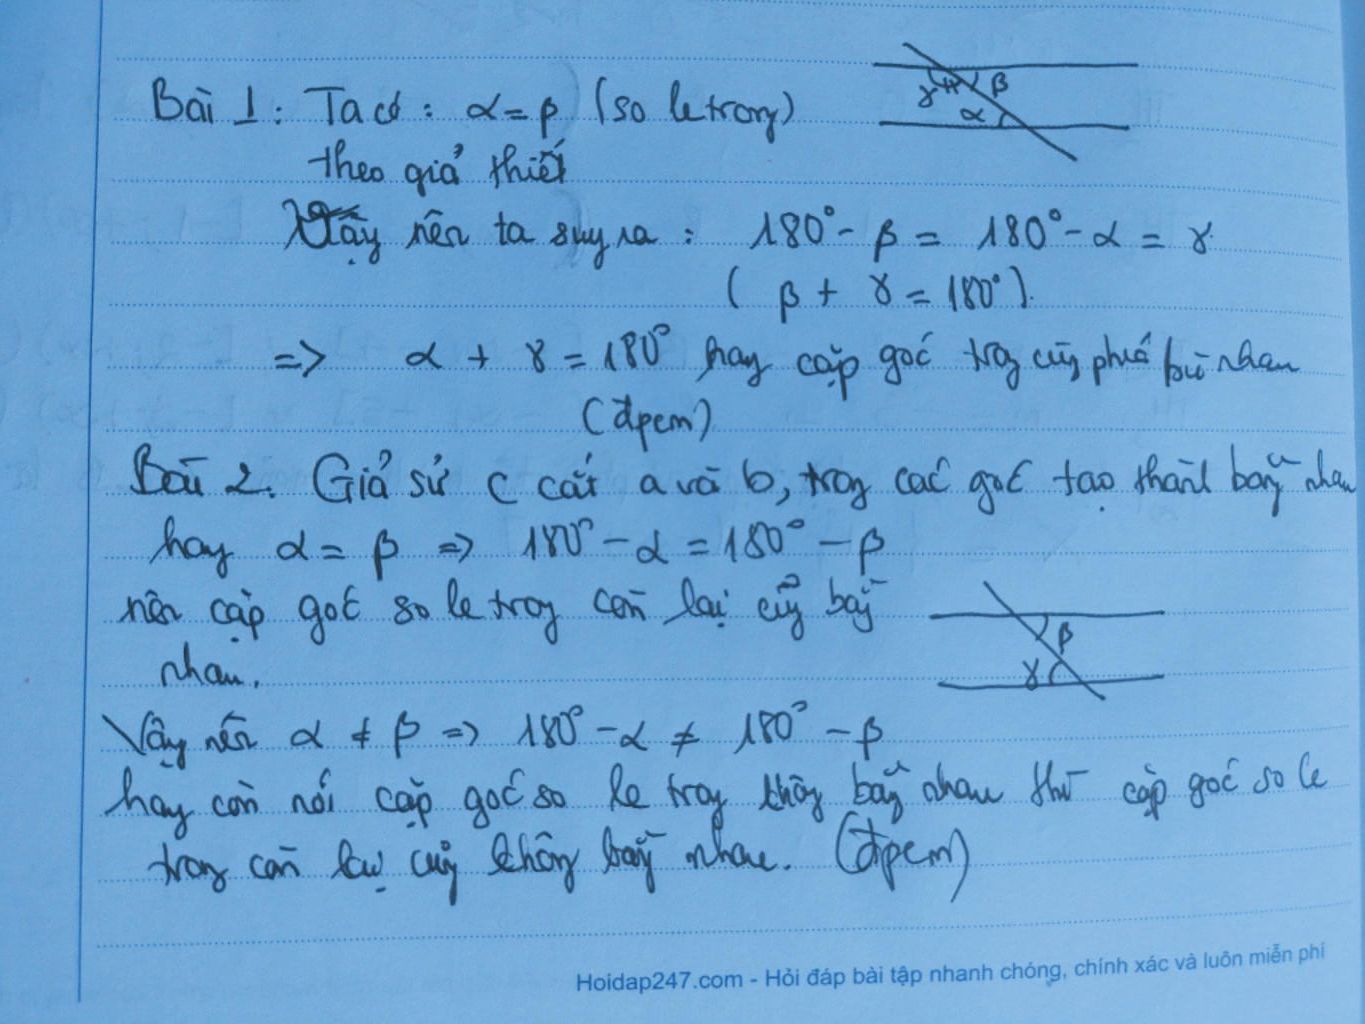 Bài 1: Ta có: α = β (so le trong)
γ β
α
theo giả thiết
Vậy nên ta suy ra: 180° - β = 180° - α = γ
( β + γ = 180° ).
=> α + γ = 180° hay cặp góc trong cùng phía bù nhau
(đpcm)
Bài 2. Giả sử c cắt a và b, trong các góc tạo thành bằng nhau
hay α = β => 180° - α = 180° - β
nên cặp góc so le trong còn lại cũng bằng
nhau.
β
γ
Vậy nên α ≠ β => 180° - α ≠ 180° - β
hay còn nói cặp góc so le trong không bằng nhau thì cặp góc so le
trong còn lại cũng không bằng nhau. (đpcm)
Hoidap247.com - Hỏi đáp bài tập nhanh chóng, chính xác và luôn miễn phí